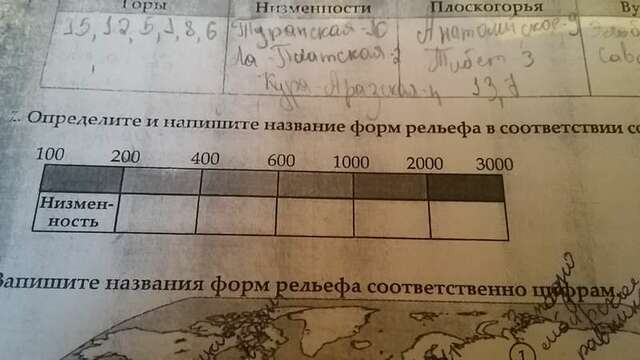 Горы Низменности Плоскогорья Ву
15, 12, 5, 1, 8, 6 Туранская-10 Анатолийское-9
Ла-Платская-2 Тибет 3
Кура-Аразская-4 13,7
2. Определите и напишите название форм рельефа в соответствии со
100 200 400 600 1000 2000 3000
Низмен-
ность
Запишите названия форм рельефа соответственно цифрам.
1